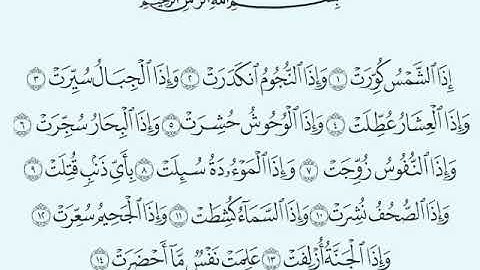 بِسْمِ اللَّهِ الرَّحْمَٰنِ الرَّحِيمِ
إِذَا الشَّمْسُ كُوِّرَتْ ١ وَإِذَا النُّجُومُ انْكَدَرَتْ ٢ وَإِذَا الْجِبَالُ سُيِّرَتْ ٣
وَإِذَا الْعِشَارُ عُطِّلَتْ ٤ وَإِذَا الْوُحُوشُ حُشِرَتْ ٥ وَإِذَا الْبِحَارُ سُجِّرَتْ ٦
وَإِذَا النُّفُوسُ زُوِّجَتْ ٧ وَإِذَا الْمَوْءُدَةُ سُئِلَتْ ٨ بِأَيِّ ذَنْبٍ قُتِلَتْ ٩
وَإِذَا الصُّحُفُ نُشِرَتْ ١٠ وَإِذَا السَّمَآءُ كُشِطَتْ ١١ وَإِذَا الْجَحِيمُ سُعِّرَتْ ١٢
وَإِذَا الْجَنَّةُ أُزْلِفَتْ ١٣ عَلِمَتْ نَفْسٌ مَّآ أَحْضَرَتْ ١٤